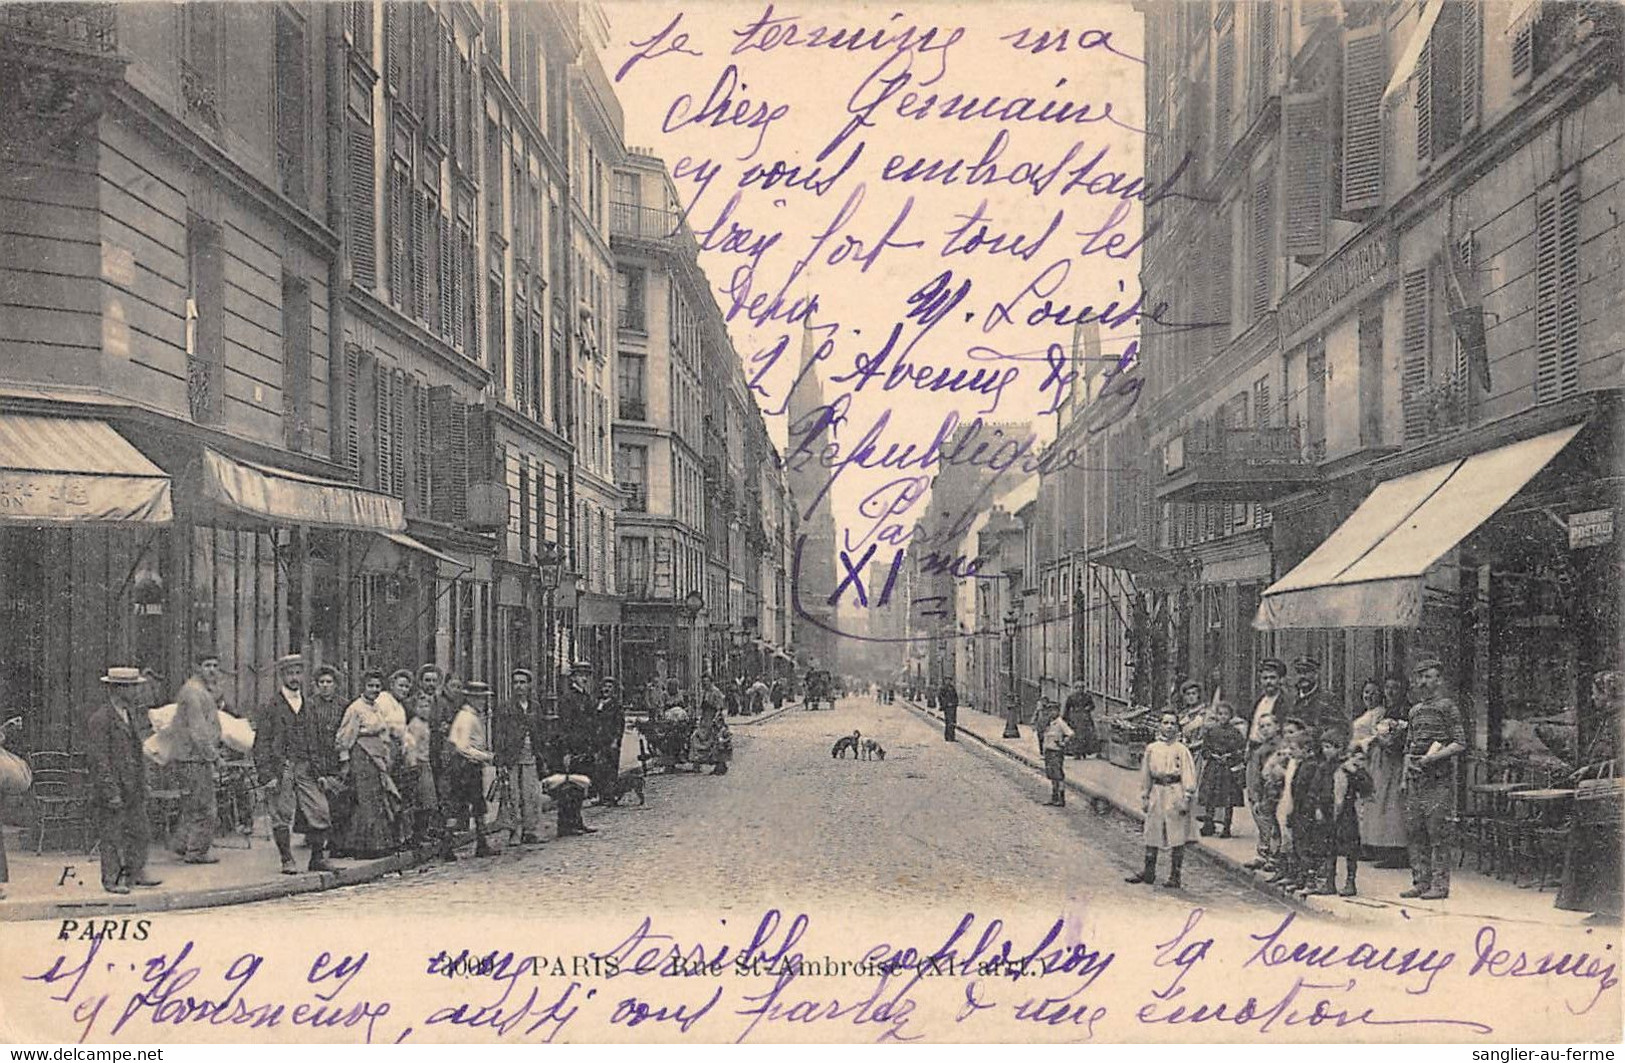 Je termine ma
chère Germaine
en vous embrassant
bien fort tous les
deux. M. Louise
25 Avenue de la
République
Paris
XI me
F. F.
PARIS
PARIS - Rue St-Ambroise (XIe arrt.)
il y a eu une terrible explosion la semaine dernière
a Horneneuve, aussi vous parlez d'une émotion
sanglier-au-ferme